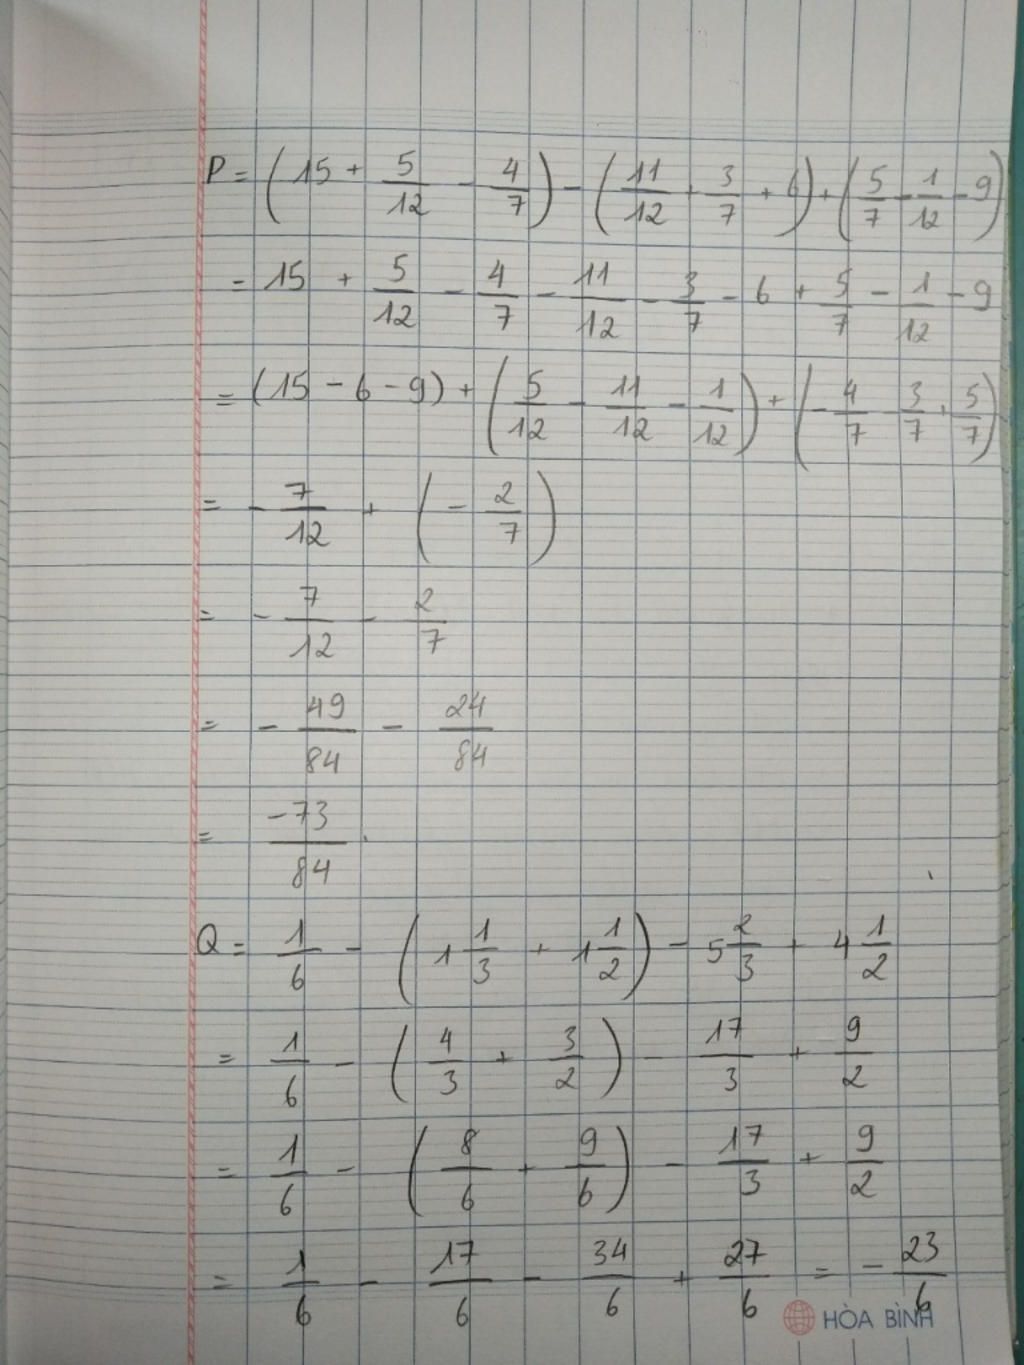 P = (15 + 5/12 - 4/7) - (11/12 + 3/7 + 6) + (5/7 - 1/12 - 9)
= 15 + 5/12 - 4/7 - 11/12 - 3/7 - 6 + 5/7 - 1/12 - 9
= (15 - 6 - 9) + (5/12 - 11/12 - 1/12) + (- 4/7 - 3/7 + 5/7)
= - 7/12 + (- 2/7)
= - 7/12 - 2/7
= - 49/84 - 24/84
= -73/84 .
Q = 1/6 - (1 1/3 + 1 1/2) - 5 2/3 + 4 1/2
= 1/6 - (4/3 + 3/2) - 17/3 + 9/2
= 1/6 - (8/6 + 9/6) - 17/3 + 9/2
= 1/6 - 17/6 - 34/6 + 27/6 = - 23/6
HÒA BÌNH